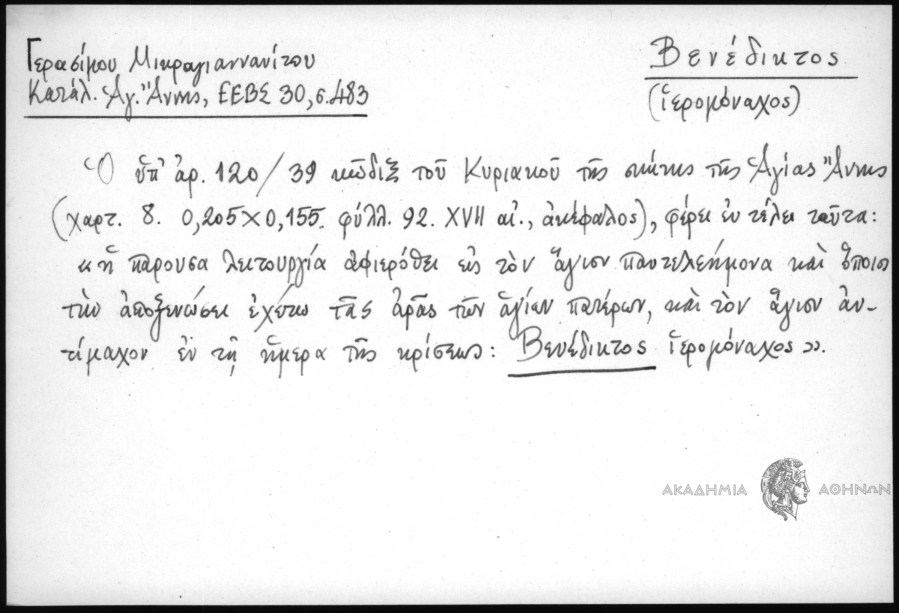 Γερασίμου Μικραγιαννανίτου
Κατάλ. Ἁγ. Ἄννης, ΕΕΒΣ 30, σ. 483
Βενέδικτος
(ἱερομόναχος)
Ὁ ὑπ' ἀρ. 120/39 κῶδιξ τοῦ Κυριακοῦ τῆς σκήτης τῆς Ἁγίας Ἄννης
(χαρτ. 8. 0,205×0,155. φύλλ. 92. XVII αἰ., ἀκέφαλος), φέρει ἐν τέλει ταῦτα:
«ἡ παρουσα λειτουργία ἀφιερόθει εἰς τὸν ἅγιον παντελεήμονα καὶ ὅποιος
τὴν ἀποξενώσει ἐχέτω τὰς ἀρὰς τῶν ἁγίων πατέρων, καὶ τὸν ἅγιον ἀν-
τίμαχον ἐν τῇ ἡμερα τῆς κρίσεως: Βενέδικτος ἱερομόναχος».
ΑΚΑΔΗΜΙΑ ΑΘΗΝΩΝ